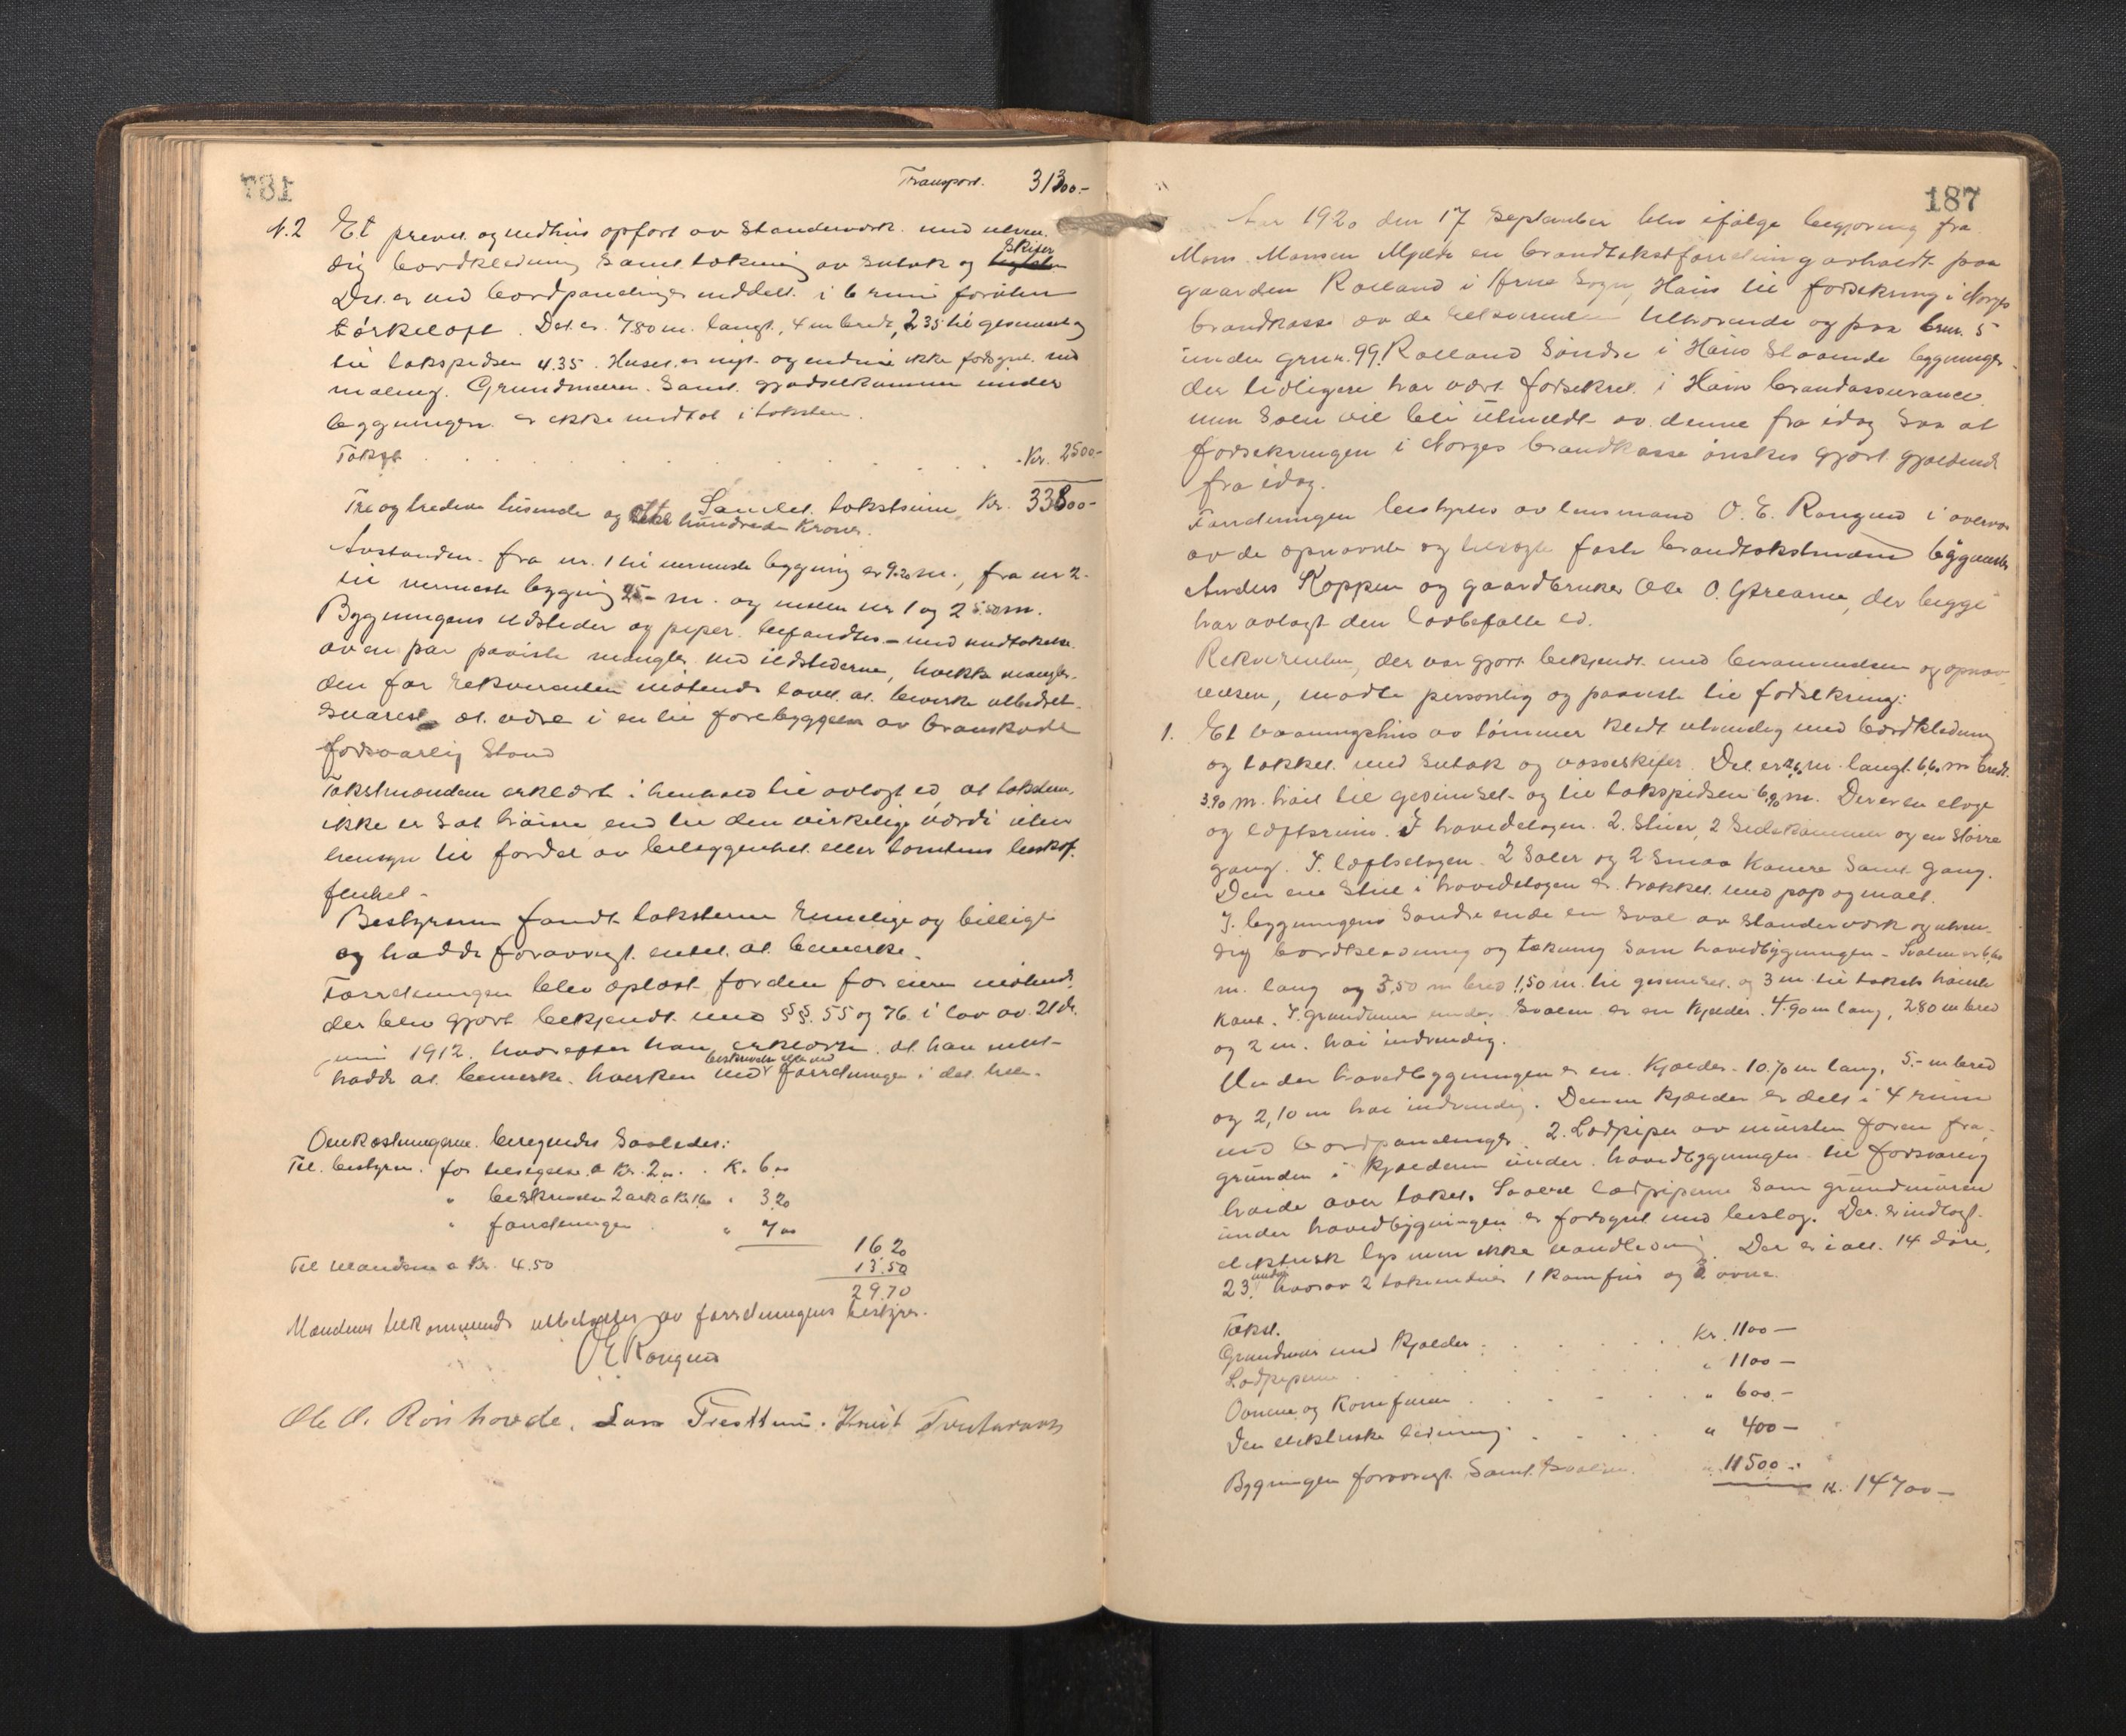 Transport. 31300.-
N.2 Et prevet og vedhus opført av standerværk med utven-
dig bordklædning samt tækning av sutak og skifer
Det er med bordpanelinger inddelt i 6 rum foruten
tørkeloft. Det er 7.80 m. langt, 4 m bredt, 2.35 til gesimset og
til takspidsen 4.35. Huset er nyt og endnu ikke forsynt med
maling. Grundmuren samt gjødselkummen under
bygningen er ikke medtat i taksten.
Takst . . . . . . . . Kr. 2500.-
Samlet takstsum Kr. 33800-
Tre og tredive tusende og otte hundrede Kroner.
Avstanden fra nr. 1 til nærmeste bygning er 9.20 m., fra nr 2
til nærmeste bygning 25 - m. og mellem nr 1 og 2 5.50 m.
Bygningens ildsteder og piper befandtes - med undtakelse
av en par paaviste mangler ved ildstederne, hvilke mangler
den for rekvirenten møtende lovet at bevirke utbedret
snarest at være i en til forebyggelse av brandskade
forsvarlig stand
Takstmændene erklærte i henhold til avlagt ed, at taksten
ikke er sat høiere end til den virkelige værdi uten
hensyn til fordel av beliggenhet eller tomtens beskaf-
fenhet -
Bestyreren fandt taksterne rimelige og billige
og hadde forøvrigt intet at bemerke.
Forretningen blev oplæst for den for eieren møtende,
der blev gjort bekjendt med §§. 55 og 76 i lov av 21de
juni 1912, hvorefter han erklærte at han intet
hadde at bemerke hverken ved beskrivelsen eller ved forretningen i det hele.
Omkostningerne beregnedes saaledes:
Til bestyrer. for besigtelse a Kr. 2.- . K. 6.00
" beskrivelse 2 ark a Kr 1.60 " 3.20
" forretningen " 7.00
16.20
Til Mændene a Kr. 4.50 13.50
29.70
Mændenes tilkommende utbetales av forretningens bestyrer.
O E Rongved
Ole O. Rønhovde. Lars Trættun. Knut
187
Aar 1920 den 17 September blev ifølge begjæring fra
Mons Monsen Mjelde en brandtakstforretning avholdt paa
gaarden Rolland i Arne Sogn, Haus til forsikring i Norges
brandkasse av de rekvirenten tilhørende og paa brnr. 5
under grnr. 99. Rolland Søndre i Haus staaende bygninger
der tidligere har vært forsikret i Haus brandassurance
men som vil bli utmeldt av denne fra idag saa at
forsikringen i Norges brandkasse ønskes gjort gjældende
fra idag.
Forretningen bestyres av lensmand O. E. Rongved i overvær
av de opnævnte og tilsagte faste brandtakstmænd bygmester
Anders Koppen og gaardbruker Ole O. Gtreame, der begge
har avlagt den lovbefalte ed.
Rekvirenten, der var gjort bekjendt med berammelsen og opnæv-
nelsen, møtte personlig og paaviste til forsikring:
1. Et vaaningshus av tømmer klædt utvendig med bordklædning
og takket med sutak og vosseskifer. Det er m. langt 6.60 m bredt
3.90 m. høit til gesimset og til takspidsen 6.90 m. Der er en etage
og loftsrum. I hovedetagen 2 stuer, 2 sidekammer og en større
gang. I loftsetagen 2 saler og 2 smaa kamre samt gang.
Den ene stue i hovedetagen er trækket med pap og malt.
I bygningens søndre ende en sval av standerværk og utven-
dig bordklædning og tækning som hovedbygningen - Svalen er 6,60
m. lang og 3,50 m bred 1,50 m. til gesimset og 3 m til takets høieste
kant. I grundmuren under svalen er en kjælder 4.90 m lang, 2.80 m bred
og 2 m. høi indvendig.
Under hovedbygningen er en kjælder 10.70 m lang, 5.- m bred
og 2,10 m høi indvendig. Denne kjælder er delt i 4 rum
med bordpanelinger. 2. Lodpiper av mursten føren fra
grunden i kjælderen under hovedbygningen til forsvarlig
høide over taket. Saavel lodpiperne som grundmuren
under hovedbygningen er forsynt med beslag. Der er indlagt
elektrisk lys men ikke vandledning. Der er i alt 14 døre,
23 vinduer hvorav 2 takvinduer 1 komfur og 2 ovne.
Takst.
Grundmur med kjælder . . . . . Kr. 1100 -
Lodpiperne . . . . " 1100 -
Ovnene og komfuren . . . " 600.-
Den elektriske ledning . . . . " 400 -
Bygningen forøvrigt samt svalen. " 11500.- K. 14700 -